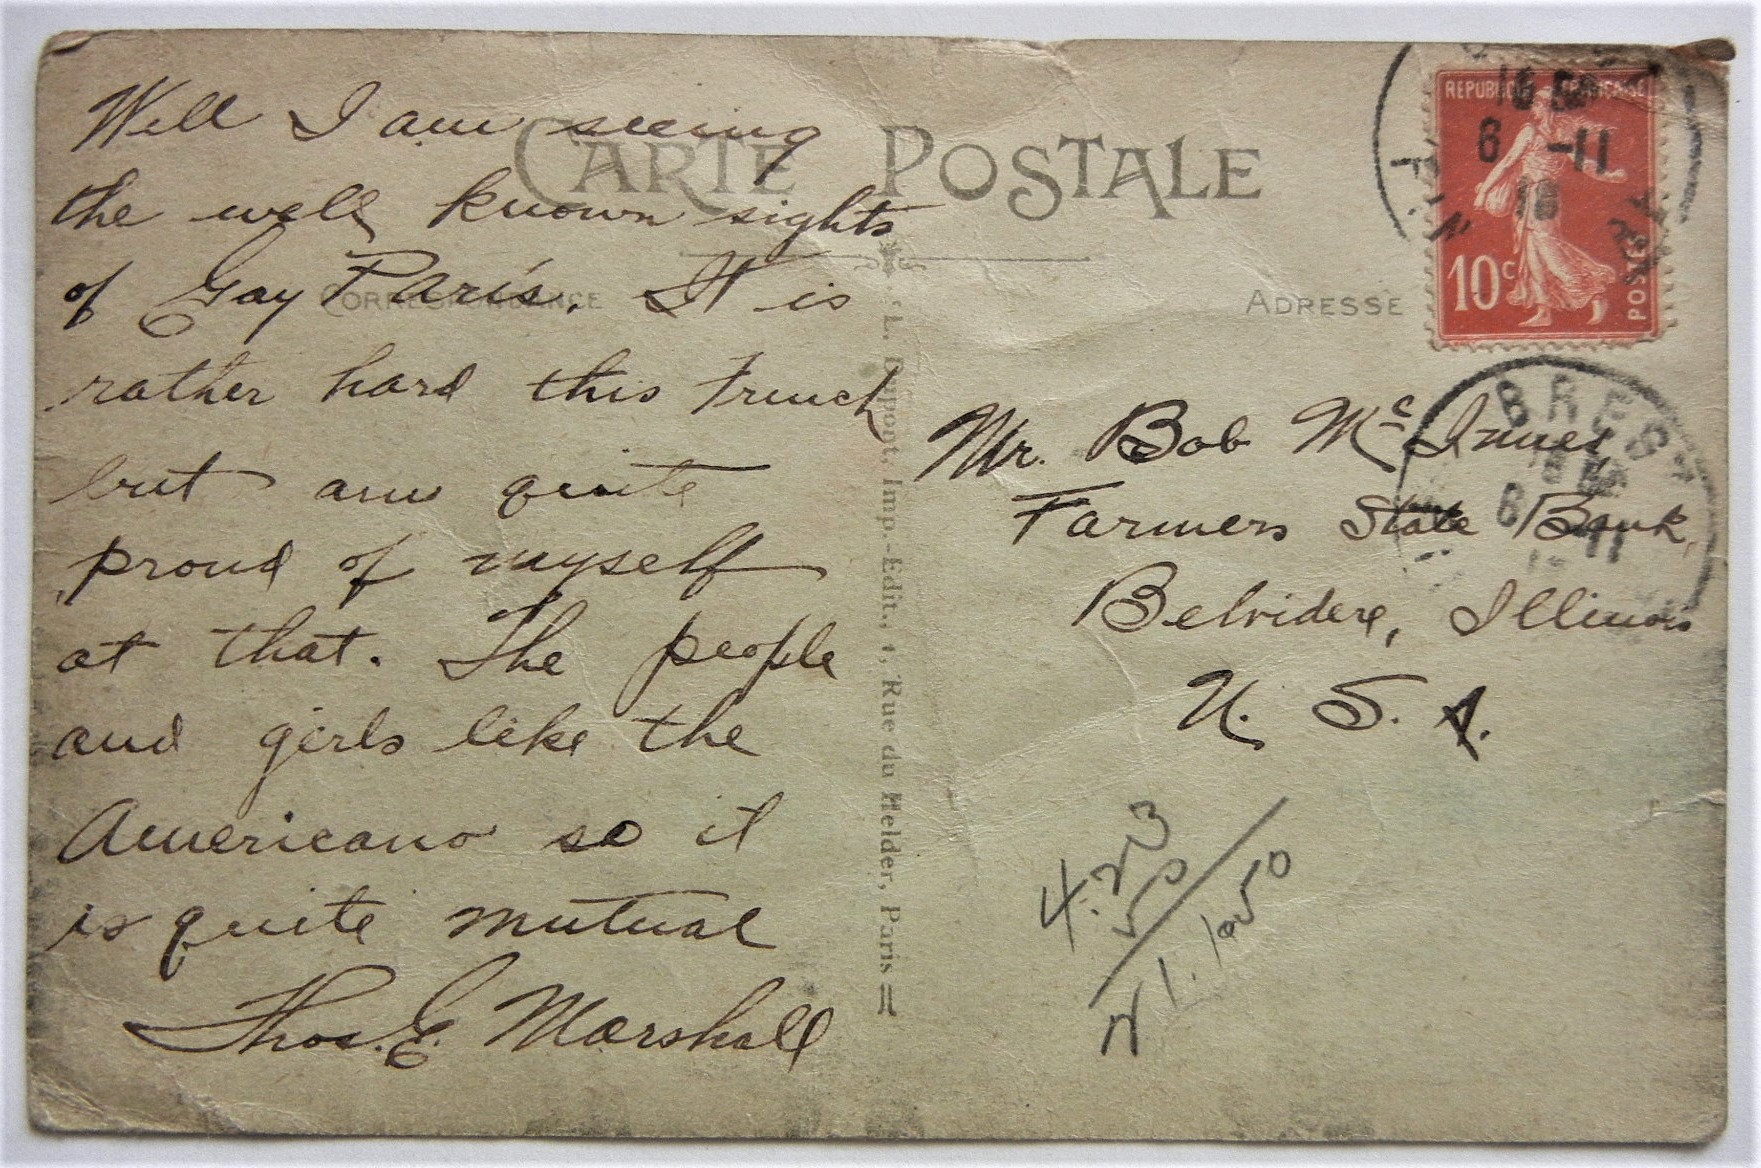 CARTE POSTALE
CORRESPONDANCE
ADRESSE
Well I am seeing
the well known sights
of Gay Paris. It is
rather hard this French
but am quite
proud of myself
at that. The people
and girls like the
Americans so it
is quite mutual
Thos. E. Marshall
L. Dupont, Imp.-Edit., 1, Rue du Helder, Paris
REPUBLIQUE FRANÇAISE
10c
POSTES
6 -11
18
BREST
6 11
Mr. Bob McInnes
Farmers State Bank,
Belvidere, Illinois
U. S. A.
4.23